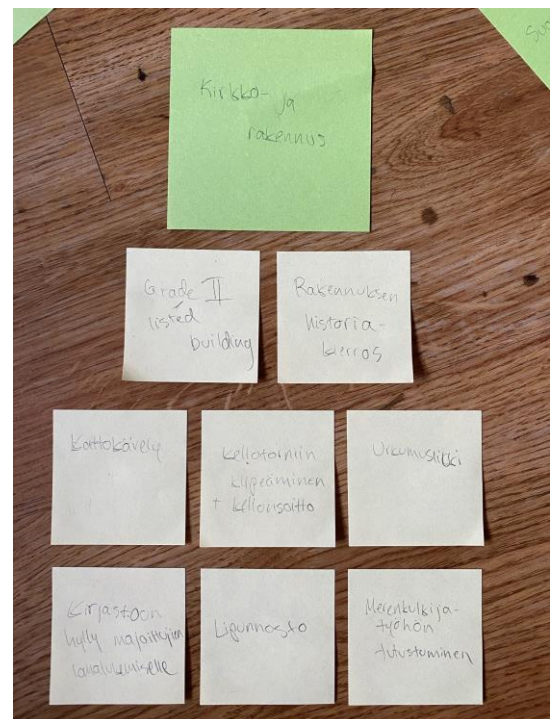 Kirkko- ja
rakennus
Grade II
listed
building
Rakennuksen
historia-
kierros
Kattokävely
Kellotorniin
kiipeäminen
+ kellonsoitto
Urkumusiikki
Kirjastoon
hylly majoittujien
Lipunnosto
Merenkulkija-
työhön
tutustuminen